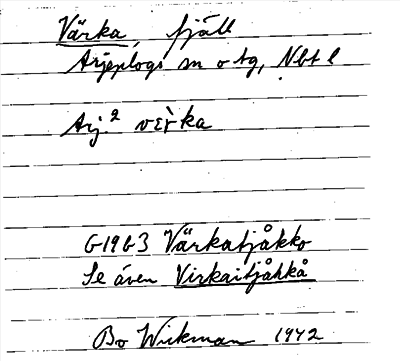 Värka, fjäll
Arjeplogs sn o tg, Nbt l
Arj.² vɛ̀rka
G19G3 Värkatjåkko
Se även Virkaitjåkkå
Bo Wickman 1942